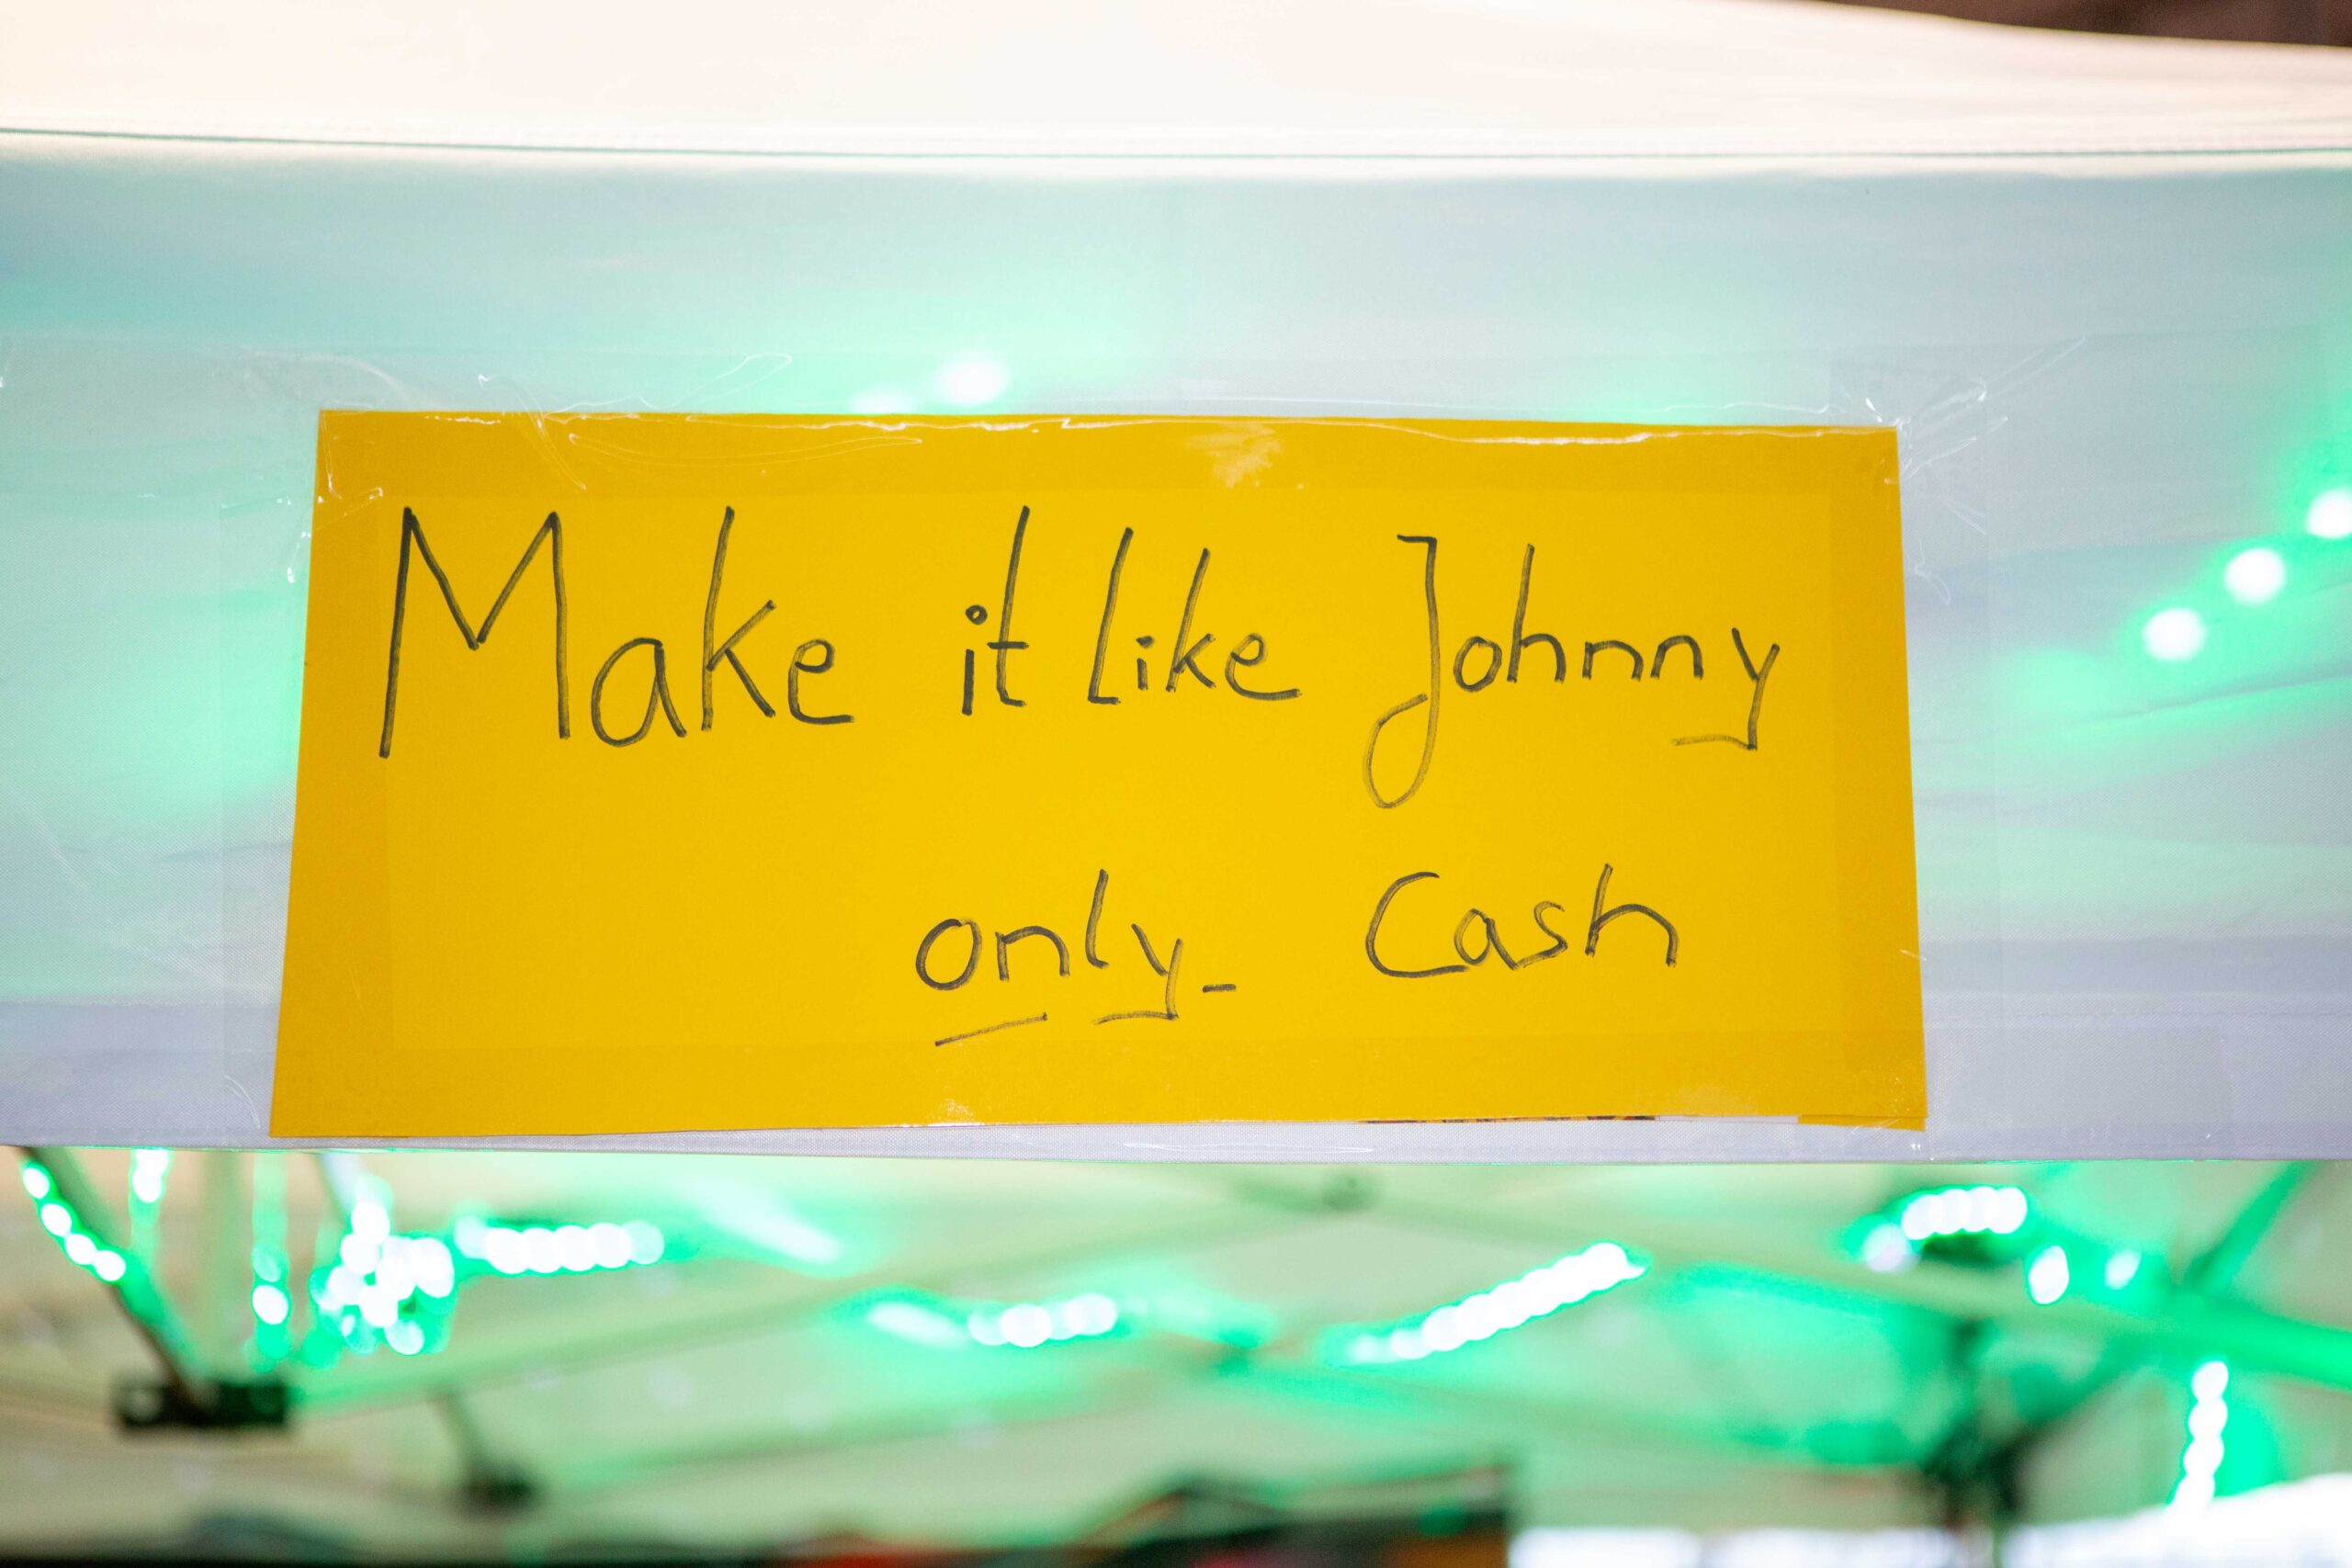 Make it like Johnny
only_ Cash